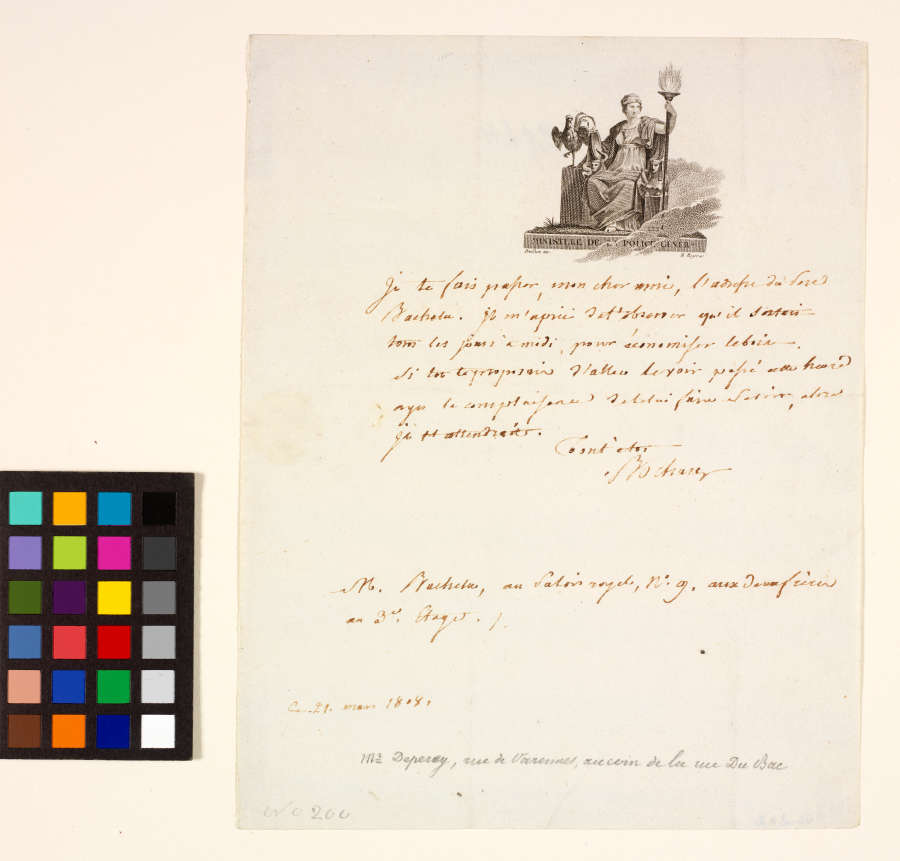 MINISTERE DE LA POLICE GENER
Je te fais passer, mon cher ami, l'adresse du Sieur
Bachelu. Il m'a prié de t'observer qu'il sortait
tous les jours à midi, pour économiser le bois.
Si tu te proposais d'aller le voir passé cette heure
ayes la complaisance de le lui faire savoir, alors
il t'attendrait.
Tout à toi
M. Bachelu, au Palais royal, N.° 9, aux deux frères
au 3.e Etage.
Ce 21. mars 1808.
Mr Deperey, rue de Varennes, au coin de la rue Du Bac
N° 200